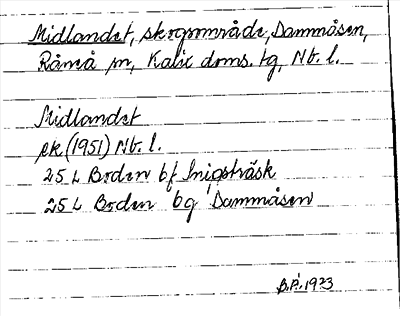 Midlandet, skogsområde, Dammåsen,
Råneå sn, Kalix doms. tg, Nb. l.
Midlandet
ek (1951) Nb. l.
25 L Boden bf Inigsträsk
25 L Boden bg Dammåsen
B.P. 1973